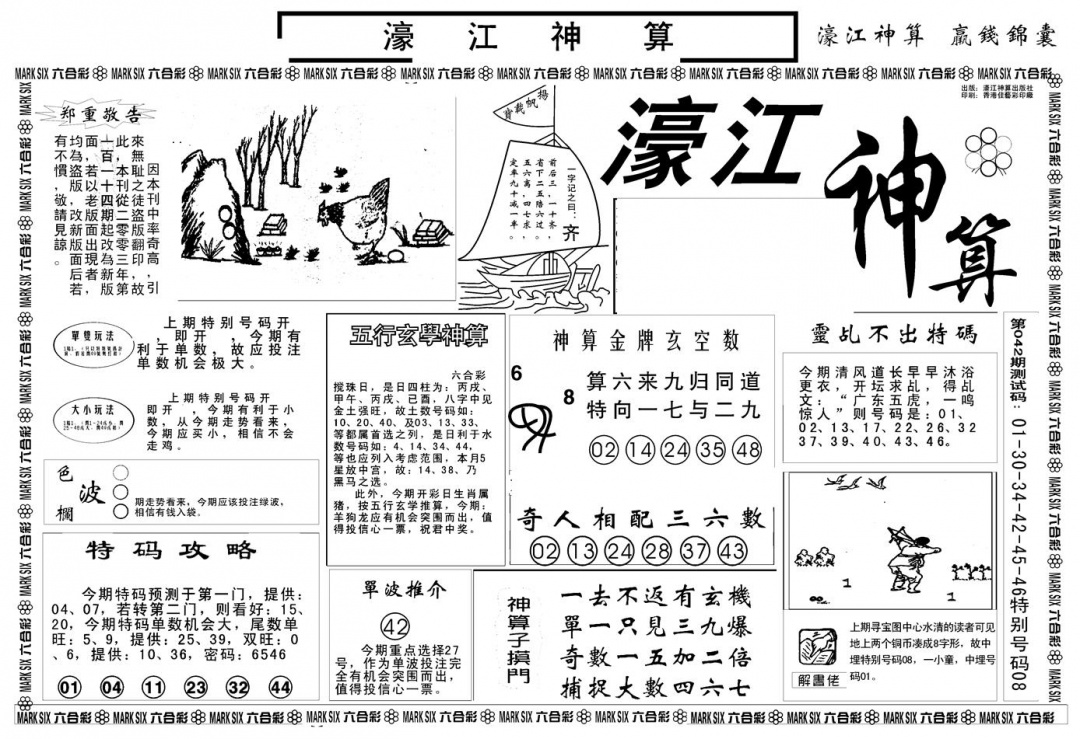 濠江神算
濠江神算 贏錢錦囊
MARK SIX 六合彩 MARK SIX 六合彩 MARK SIX 六合彩 MARK SIX 六合彩 MARK SIX 六合彩 MARK SIX 六合彩 MARK SIX 六合彩 MARK SIX 六合彩 MARK SIX 六合彩 MARK SIX 六合彩 MARK SIX 六合彩
出版：濠江神算出版社
印刷：香港佳藝彩印廠
濠江
神算
郑重敬告
因本刊中率奇高，引
來無恥之徒盜版翻印，故
此，本刊從二零零三年第
一百一十四期起改現新版，
面，若以老版面出為者若
均為盗版，敬請
有不慣，請見諒。
揚帆載譽
一字记之曰：齐
前后三，一十齐，
省下二五陪六过。
五六离，四七求，
定车九十减一半。
單雙玩法
上期特别号码开
，即开　，今期有
利于单数，故应投注
单数机会极大。
大小玩法
上期特别号码开
即开　，今期有利于小
数，从今期走势看来，
今期应买小，相信不会
走鸡。
色波欄
期走势看来，今期应该投注绿波，
相信有钱入袋。
特码攻略
今期特码预测于第一门，提供：
04、07，若转第二门，则看好：15、
20，今期特码单数机会大，尾数单
旺：5、9，提供：25、39，双旺：0
、6，提供：10、36，密码：6546
01 04 11 23 32 44
五行玄學神算
六合彩
搅珠日，是日四柱为：丙戌、
甲午、丙戌、己酉，八字中见
金土强旺，故土数号码如：
10、20、40、及03、13、33、
等都属首选之列，是日利于水
数号码如：4、14、34、44，
等也应列入考虑范围，本月5
星放中宫，故：14、38、乃
黑马之选。
此外，今期开彩日生肖属
猪，按五行玄学推算，今期：
羊狗龙应有机会突围而出，值
得投信心一票，祝君中奖。
單波推介
42
今期重点选择27
号，作为单波投注完
全有机会突围而出，
值得投信心一票。
神算金牌玄空数
6
8
算六来九归同道
特向一七与二九
02 14 24 35 48
奇人相配三六數
02 13 24 28 37 43
神算子摸門
一去不返有玄機
單一只見三九爆
奇數一五加二倍
捕捉大數四六七
靈乩不出特碼
今期清风道长早早沐浴
更衣，开坛求乩，得乩
文：“广东五虎，一鸣
惊人”则号码是：01、
02、13、17、22、26、32
37、39、40、43、46。
1
1
解書佬
上期寻宝图中心水清的读者可见
地上两个铜币凑成8字形，故中
埋特别号码08，一小童，中埋号
码01。
第042期测试码：01-30-34-42-45-46特别号码08
MARK SIX 六合彩 MARK SIX 六合彩 MARK SIX 六合彩 MARK SIX 六合彩 MARK SIX 六合彩 MARK SIX 六合彩 MARK SIX 六合彩 MARK SIX 六合彩 MARK SIX 六合彩 MARK SIX 六合彩 MARK SIX 六合彩